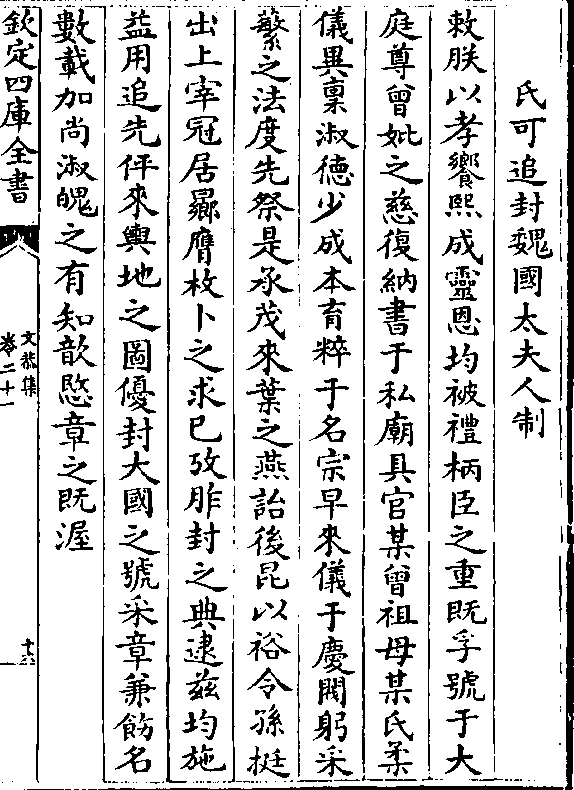 氏可追封魏國太夫人制
敕朕以孝饗熙成靈恩均被禮柄臣之重既孚號于大
庭尊曾妣之慈復納書于私廟具官某曾祖母某氏柔
儀異稟淑德少成本育粹于名宗早來儀于慶閥躬采
蘩之法度先祭是承茂來葉之燕詒後昆以裕令孫挺
出上宰冠居嚴膺枚卜之求已攷胙封之典逮兹均施
益用追先伻來輿地之圖優封大國之號采章兼飭名
數載加尚淑魄之有知歆愍章之既渥
欽定四庫全書
文恭集
卷二十一
十六